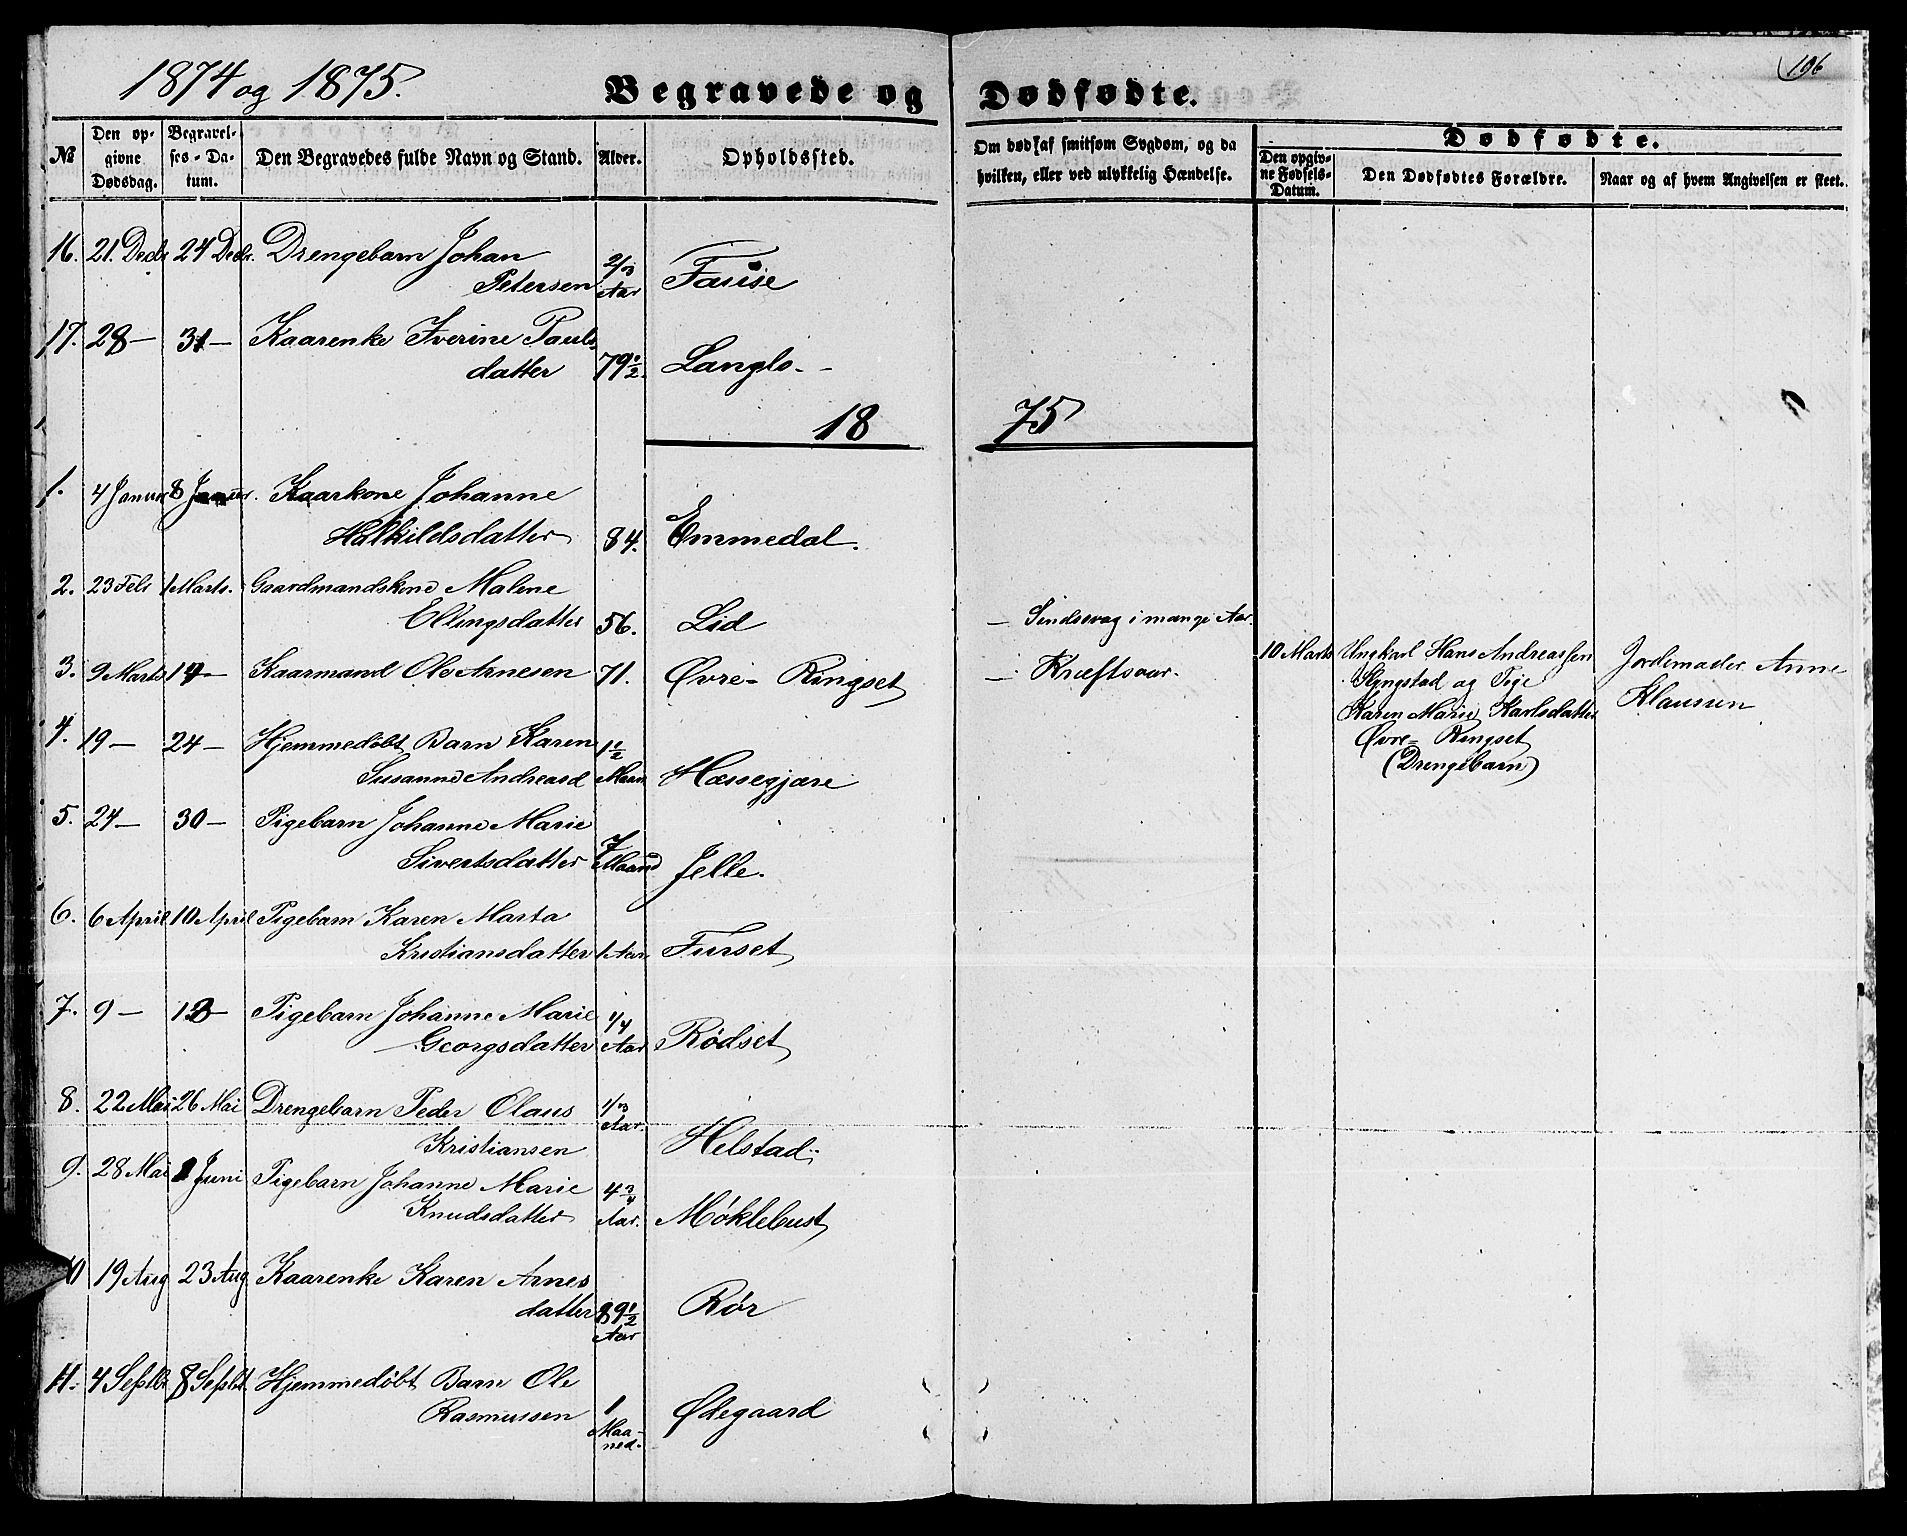 1874 og 1875.
Begravede og Dødfødte.
106
No
Den opgivne Dødsdag.
Begravelses-Datum.
Den Begravedes fulde Navn og Stand.
Alder.
Opholdssted.
Om død af smitsom Sygdom, og da hvilken, eller ved ulykkelig Hændelse.
Dødfødte.
Den opgivne Fødsels-Datum.
Den Dødfødtes Forældre.
Naar og af hvem Angivelsen er skeet.
16. 21. Decbr 24 Decbr. Drengebarn Johan
Petersen 2/3 Aar Fause
17. 28 — 31 — Kaarenke Iverine Pauls-
datter 79½. Langlo. —
18 75
1. 4 Januar 8 Januar. Kaarkone Johanne
Halkildsdatter 84. Emmedal.
2. 23 Febr 1 Marts. Gaardmandskone Malene
Ellingsdatter 56. Lid — Sindssvag i mange Aar.
3. 9 Marts 14 — Kaarmand Ole Arnesen 71. Øvre-Ringset — Kræftsaar.
10 Marts Ungkarl Hans Andreassen
Slyngstad og Pige
Karen Marie Karlsdatter
Øvre-Ringset
(Drengebarn)
Jordemoder Anne
Klaussen
4. 19 — 24 — Hjemmedøbt Barn Karen
Susanne Andreasd 1½ Maan Hæssegjære
5. 24 — 30 — Pigebarn Johanne Marie
Sivertsdatter 7 Maaned Jelle.
6. 6 April 10 April Pigebarn Karen Marta
Kristiansdatter 1 Aar Furset
7. 9 — 13 — Pigebarn Johanne Marie
Georgsdatter 1/4 Aar Rødset
8. 22 Mai 26 Mai Drengebarn Peder Olaus
Kristiansen 1/3 Aar. Helstad
9. 28 Mai 1 Juni Pigebarn Johanne Marie
Knudsdatter 4 3/4 Aar. Møklebust
10 19 Aug 23 Aug. Kaarenke Karen Arnes
datter 89½ Aar Rør
11. 4 Septbr 8 Septbr. Hjemmedøbt Barn Ole
Rasmussen 1 Maa-
ned. Ødegaard